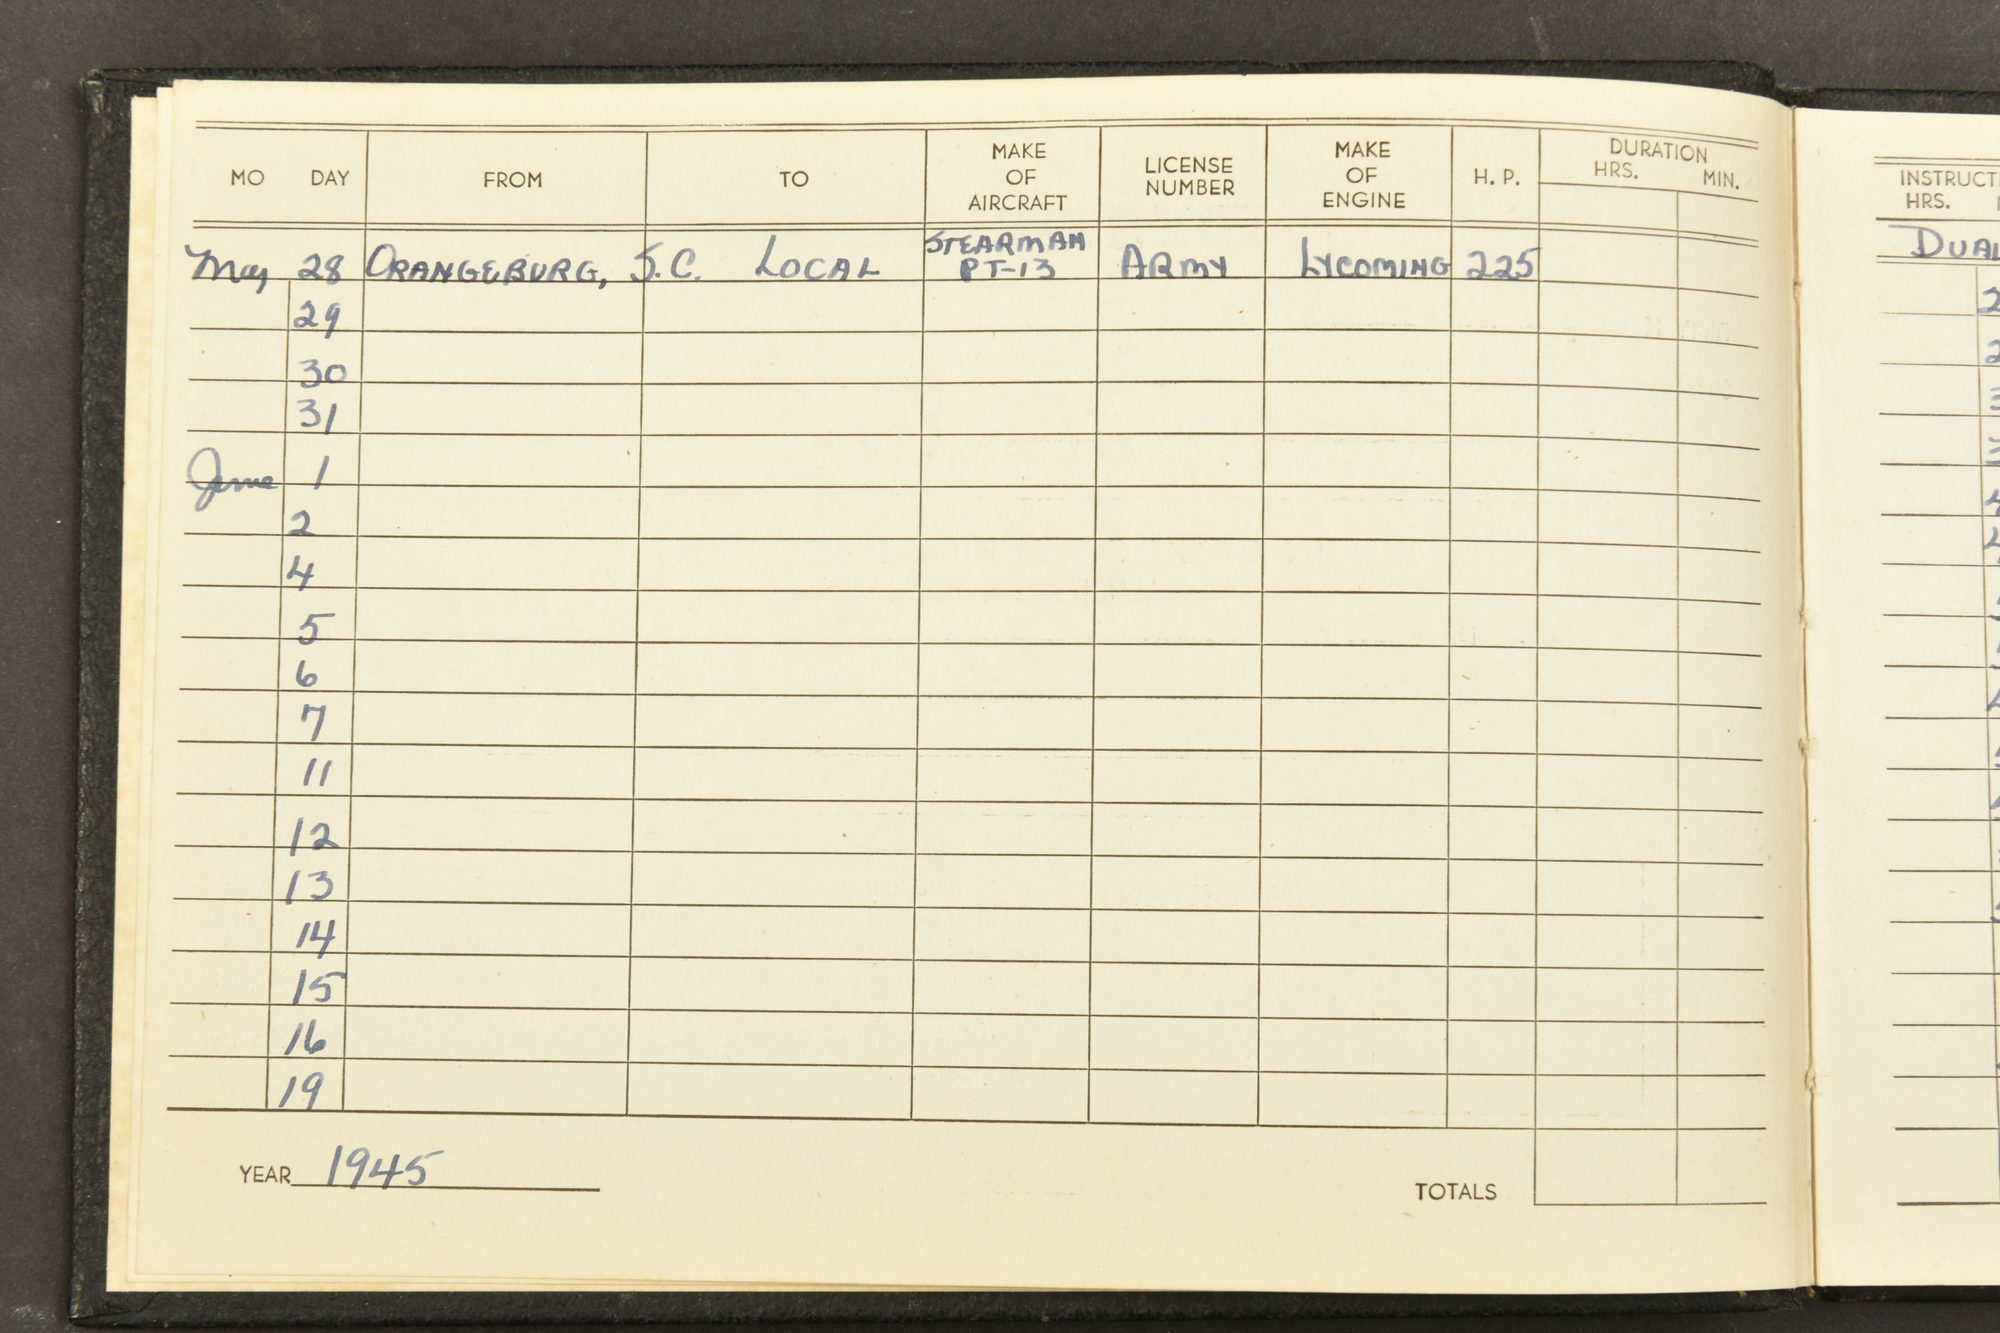 MO DAY FROM TO MAKE OF AIRCRAFT LICENSE NUMBER MAKE OF ENGINE H. P. DURATION HRS. MIN.
May 28 ORANGEBURG, S.C. LOCAL STEARMAN PT-13 ARMY LYCOMING 225
29
30
31
June 1
2
4
5
6
7
11
12
13
14
15
16
19
YEAR 1945 TOTALS
HRS.
DUAL